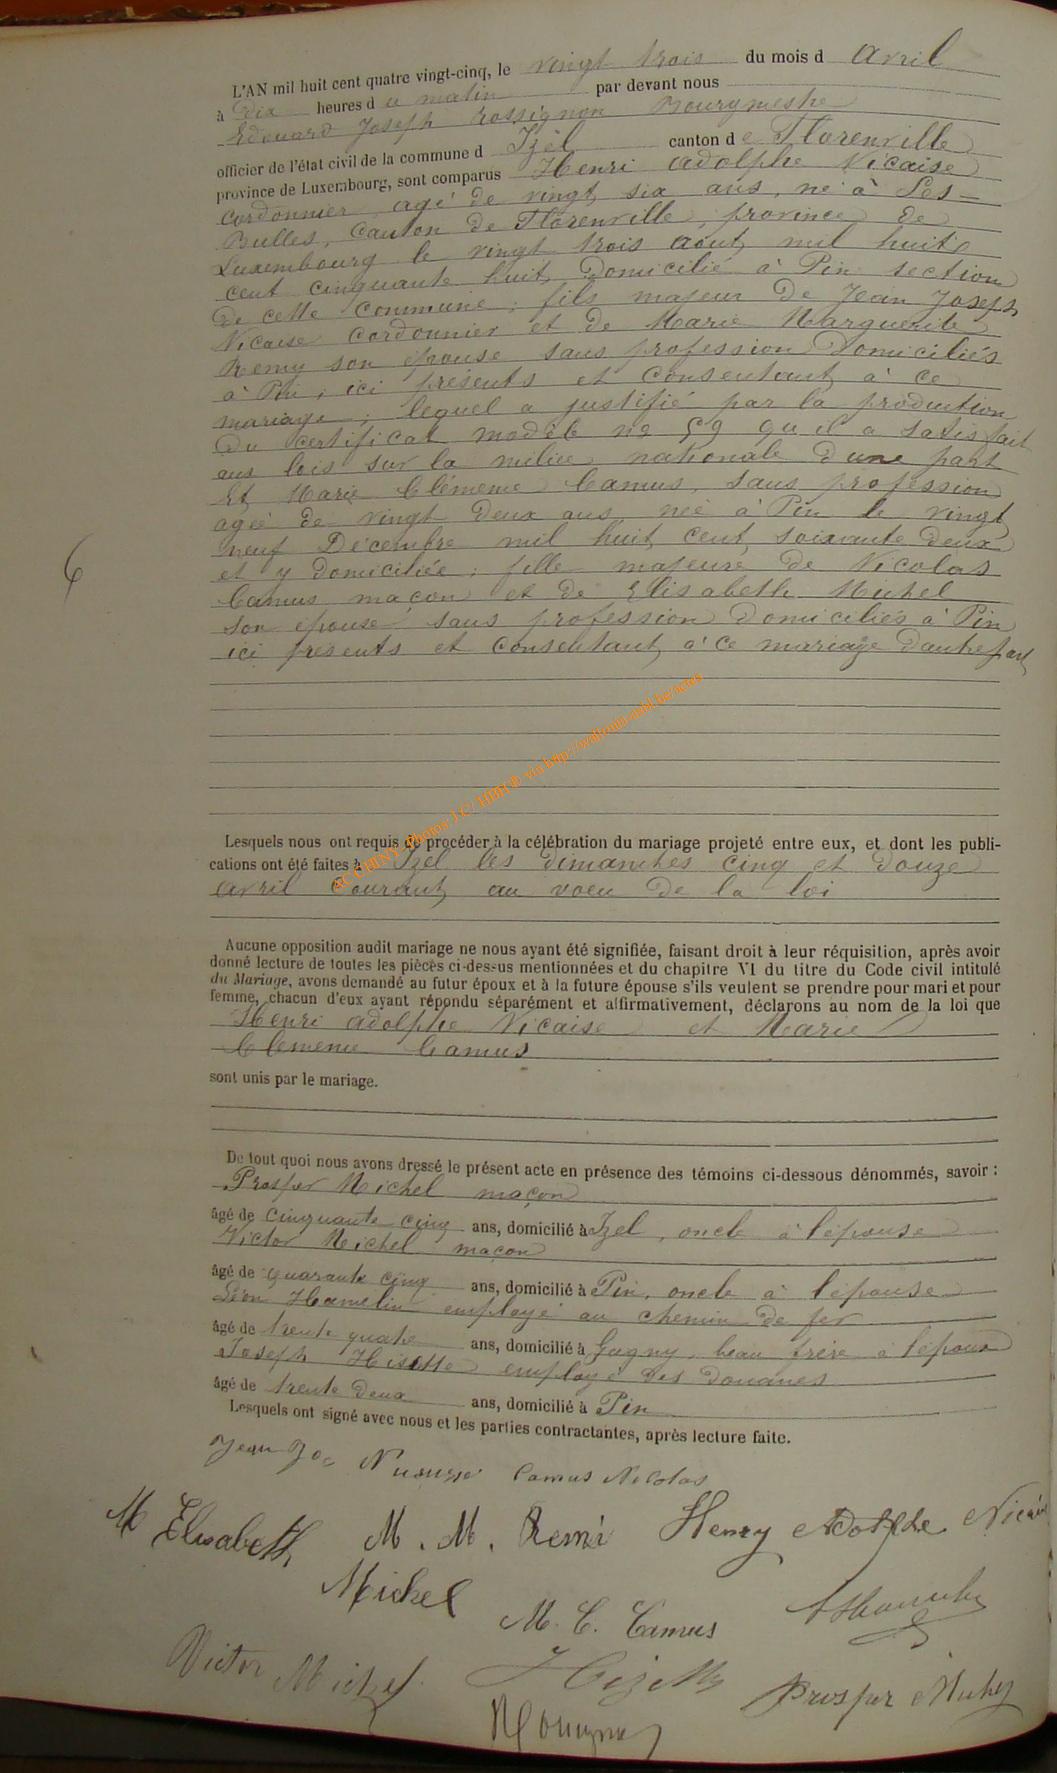 L'AN mil huit cent quatre vingt-cinq, le vingt trois du mois d avril
à Dix heures d u matin par devant nous
Edouard Joseph Rossignon Bourgmestre
officier de l'état civil de la commune d Izel canton d e Florenville
province de Luxembourg, sont comparus Henri adolphe Nicaise
Cordonnier agé de vingt six ans, né à Les-
Bulles, Canton de Florenville, province de
Luxembourg le vingt trois août mil huit
cent cinquante huit, Domicilié à Pin section
De cette commune; fils majeur De Jean Joseph
Nicaise Cordonnier et de Marie Marguerite
Remy son épouse sans profession Domiciliés
à Pin, ici présents et consentant à ce
mariage; lequel a justifié par la production
Du certificat modèle no 59 qu il a satisfait
aux lois sur la milice nationale d'une part
Et Marie Clémence Camus, sans profession
agée de vingt Deux ans née à Pin le vingt
neuf Décembre mil huit cent soixante deux
et y domiciliée; fille majeure de Nicolas
Camus maçon et de Elisabeth Michel
son épouse sans profession Domiciliés à Pin
ici présents et consentant à ce mariage d'autre part
6
Lesquels nous ont requis de procéder à la célébration du mariage projeté entre eux, et dont les publi-
cations ont été faites à Izel les dimanches cinq et douze
avril courant, au voeu de la loi
AC CHINY Photos J.C. HIRT © via http://wallonia-asbl.be/actes
Aucune opposition audit mariage ne nous ayant été signifiée, faisant droit à leur réquisition, après avoir
donné lecture de toutes les pièces ci-dessus mentionnées et du chapitre VI du titre du Code civil intitulé
du Mariage, avons demandé au futur époux et à la future épouse s'ils veulent se prendre pour mari et pour
femme, chacun d'eux ayant répondu séparément et affirmativement, déclarons au nom de la loi que
Henri adolphe Nicaise et Marie
Clémence Camus
sont unis par le mariage.
De tout quoi nous avons dressé le présent acte en présence des témoins ci-dessous dénommés, savoir :
Prosper Michel maçon
âgé de cinquante cinq ans, domicilié à Izel, oncle à l'épouse
Victor Michel maçon
âgé de quarante cinq ans, domicilié à Pin, oncle à l'épouse
Léon Hamelin employé au chemin de fer
âgé de trente quatre ans, domicilié à beau frère à l'époux
Joseph Hisette employé des Douanes
âgé de trente deux ans, domicilié à Pin
Lesquels ont signé avec nous et les parties contractantes, après lecture faite.
Jean Jos Camus Nicolas
M Elisabeth M. M. Remi Henry Adolphe Nicaise
Michel M. C. Camus
Victor Michel Prosper Michel